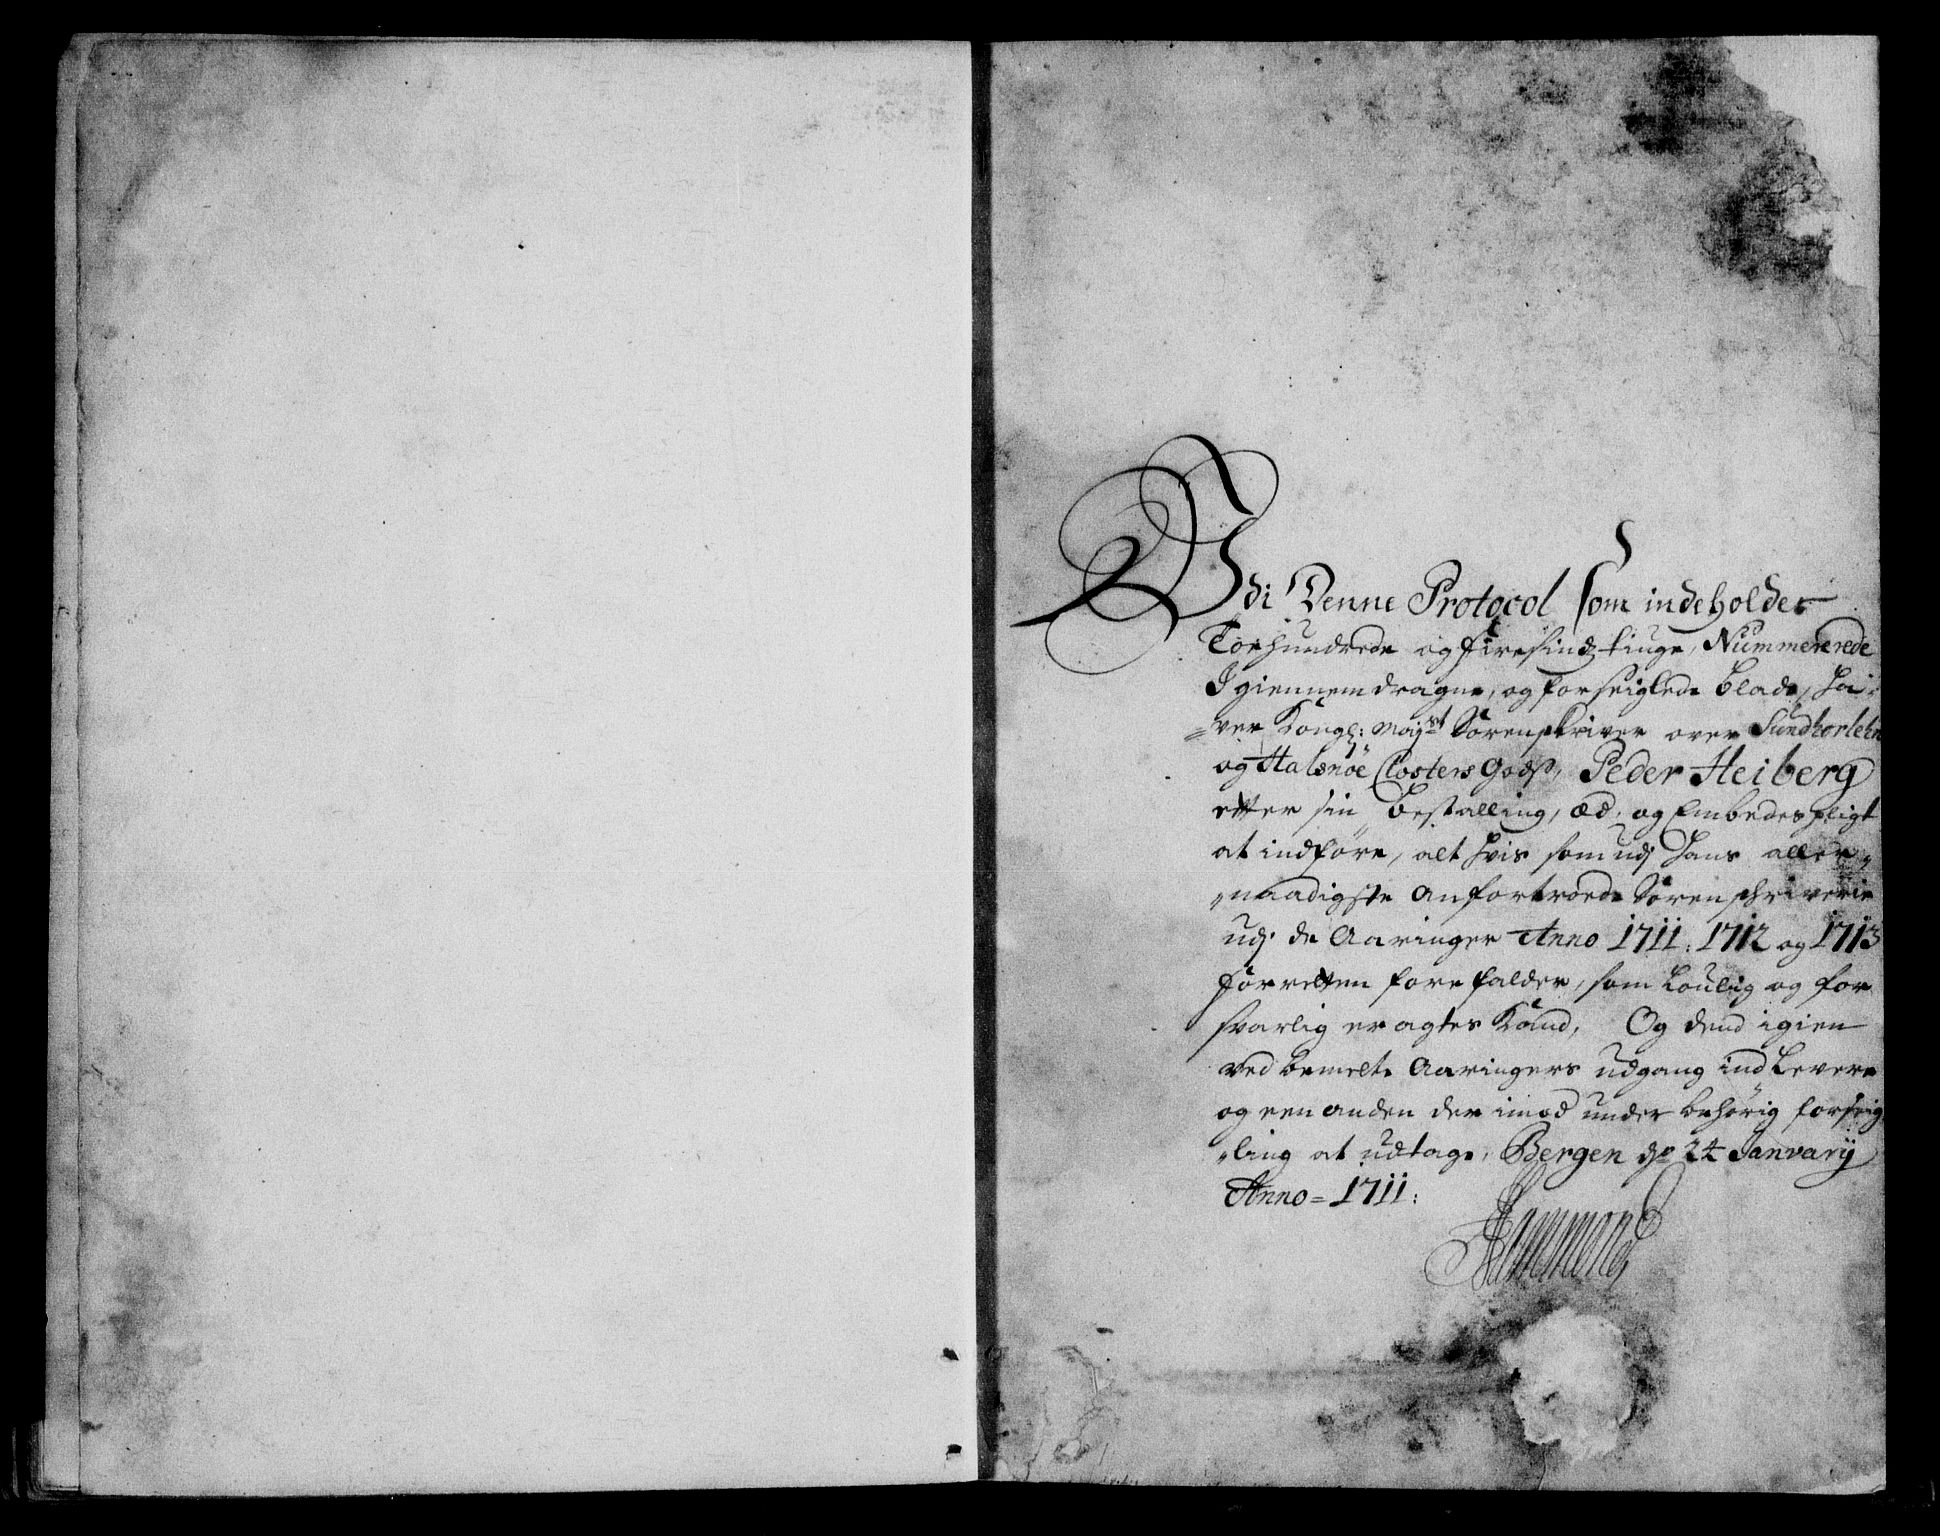 Udi Denne Protocol som indeholder
Toehundrede og firesindztiuge, Nummererede
Igiennemdragne, og forseiglede blade, ha¬
=ver Kongl: Mayst Sorenskriver over Sundhorlehn
og Halsnöe Closters Gods, Peder Heiberg
efter sin bestalling, æd, og Embedes pligt
at indföre, alt hvis som udj hans aller„
„naadigste Anfortroede Sorenschriverie
udj de Aaringer Anno 1711: 1712 og 1713
for retten forefalder, som Loulig og for
svarlig eragtes Kand, Og dend igien
ved bemelte Aaringers udgang ind Levere
og een anden der imod under behörig forseig
„ling at udtage, Bergen de 24 Janvarij
Anno = 1711:
Hammond